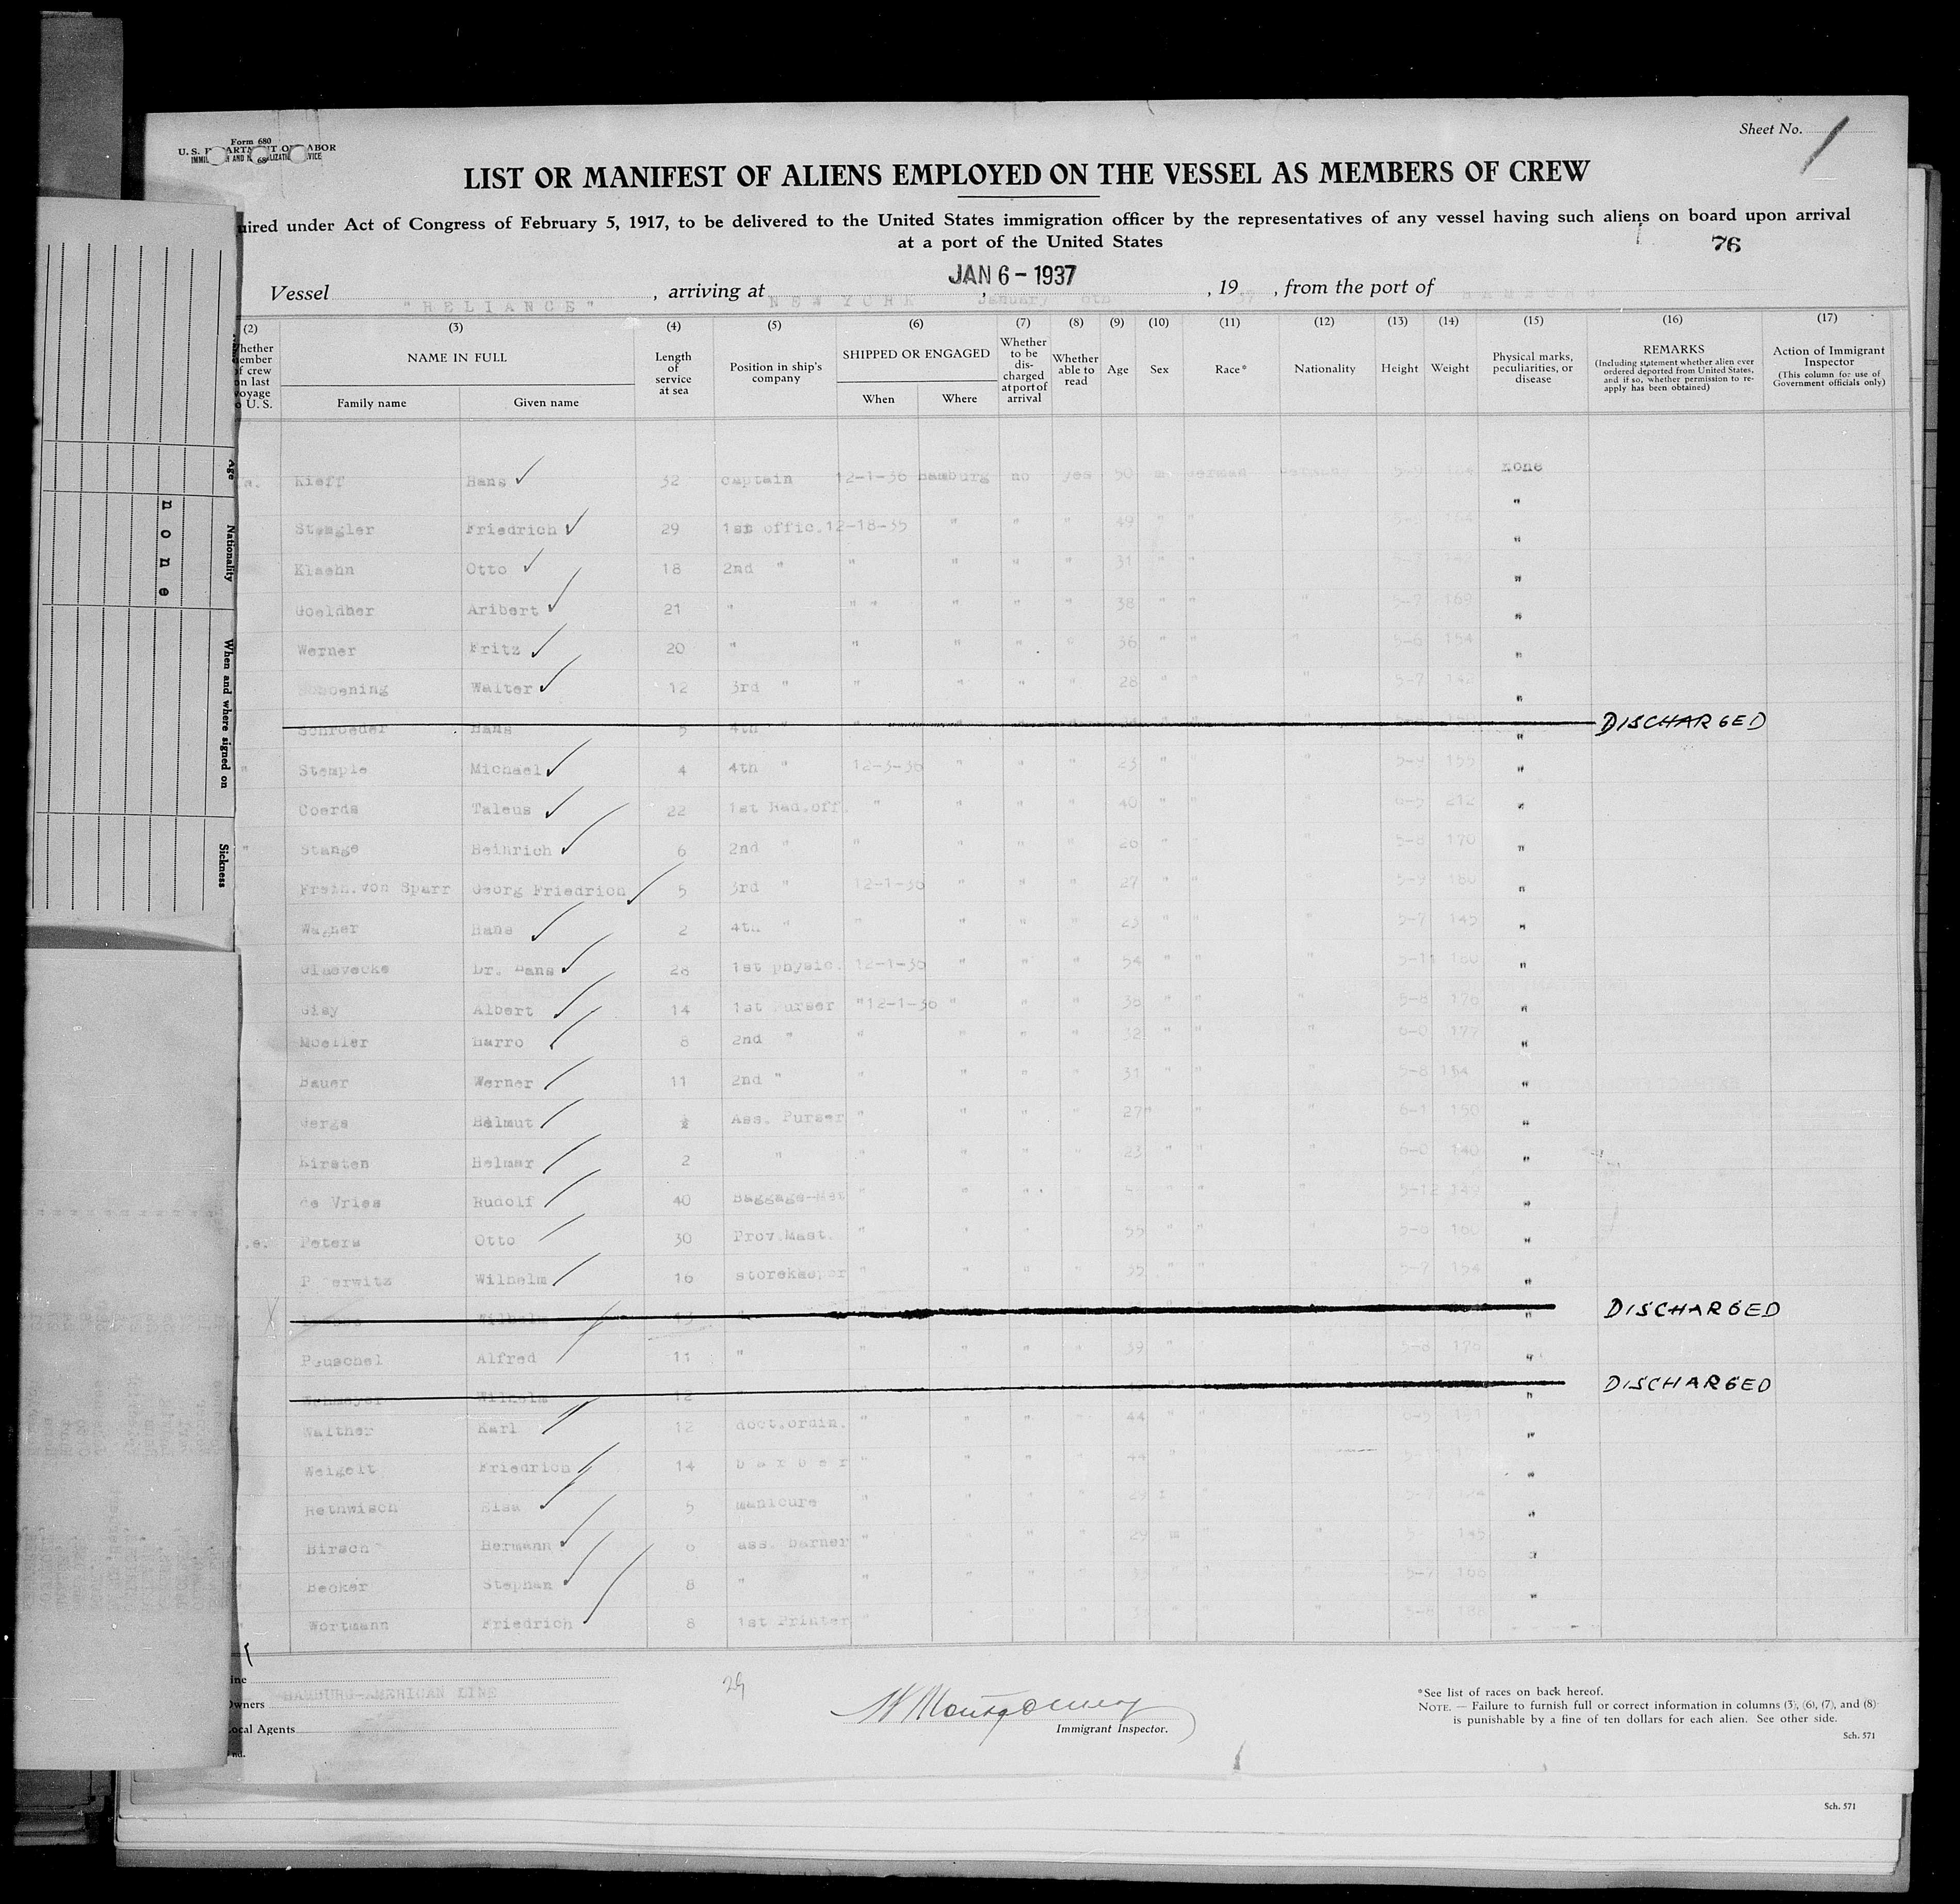 Form 680
Sheet No. 1
LIST OR MANIFEST OF ALIENS EMPLOYED ON THE VESSEL AS MEMBERS OF CREW
uired under Act of Congress of February 5, 1917, to be delivered to the United States immigration officer by the representatives of any vessel having such aliens on board upon arrival
at a port of the United States
76
JAN 6 - 1937
Vessel "RELIANCE", arriving at NEW YORK January 6th, 1937, from the port of HAMBURG
(2) (3) (4) (5) (6) (7) (8) (9) (10) (11) (12) (13) (14) (15) (16) (17)
NAME IN FULL
Family name Given name
Length of service at sea
Position in ship's company
SHIPPED OR ENGAGED
When Where
Whether to be discharged at port of arrival
Whether able to read
Age Sex Race* Nationality Height Weight
Physical marks, peculiarities, or disease
REMARKS
(Including statement whether alien ever ordered deported from United States, and if so, whether permission to reapply has been obtained)
Action of Immigrant Inspector
(This column for use of Government officials only)
Kieff Hans 32 captain 12-1-36 hamburg no yes 50 m german None
Stengler Friedrich 29 1st offic. 12-18-35 " " " 49 " " "
Klaehn Otto 18 2nd " " " " " 31 " " "
Goeldner Aribert 21 " " " " " " 38 " " " 5-7 169 "
Werner Fritz 20 " " " " " 36 " " " 5-6 154 "
Walter 12 3rd " " " " " 28 " " " 5-7 "
Schroeder Hans 5 4th " DISCHARGED
" Stemple Michael 4 4th " 12-3-36 " " " 23 " " 5-9 155 "
Coerds Taleus 22 1st Rad.off. " " " " 40 " " " 6-3 212 "
" Stange Heinrich 6 2nd " " " " " 26 " " 5-8 170 "
Freih.von Sparr Georg Friedrich 5 3rd " 12-1-36 " " " 27 " " 5-9 180 "
Wagner Hans 2 4th " " " " " 23 " " " 5-7 145 "
Glaevecke Dr. Hans 28 1st physic. 12-1-36 " " " 54 " " " 5-11 160 "
Gisy Albert 14 1st Purser "12-1-36 " " " 36 " " " 5-8 176 "
Moeller Harro 8 2nd " " " " " 32 " " " 6-0 177 "
Bauer Werner 11 2nd " " " " " 31 " " " 5-8 164 "
Helmut ½ Ass. Purser " " " " 27 " " " 6-1 150 "
Kirsten Helmar 2 " " " " " 23 " " " 6-0 140 "
de Vries Rudolf 40 Baggage-Mst " " " " " " 5-12 "
Peters Otto 30 Prov.Mast. " " " " 55 " " " 5-6 160 "
Wilhelm 16 storekeeper " " " " 35 " " " 5-7 154 "
Wilhelm 13 DISCHARGED
Peuschel Alfred 11 " " " " " 39 " " 5-8 176 "
Wilhelm 12 DISCHARGED
Walther Karl 12 doct.ordin. " " " " 44 " " "
Weigelt Friedrich 14 barber " " " " 44 " "
Rethwisch Elsa 5 manicure " " " " 29 f "
Hirsch Hermann 6 ass. barber " " " " 29 m " " 145 "
Becker Stephan 8 " " " " " " " " 5-7 166 "
Wortmann Friedrich 8 1st Printer "
HAMBURG-AMERICAN LINE
Owners
Local Agents
29
W Montgomery
Immigrant Inspector.
*See list of races on back hereof.
NOTE. — Failure to furnish full or correct information in columns (3), (6), (7), and (8) is punishable by a fine of ten dollars for each alien. See other side.
Sch. 571
Sch. 571
Age
Nationality
When and where signed on
Sickness
none